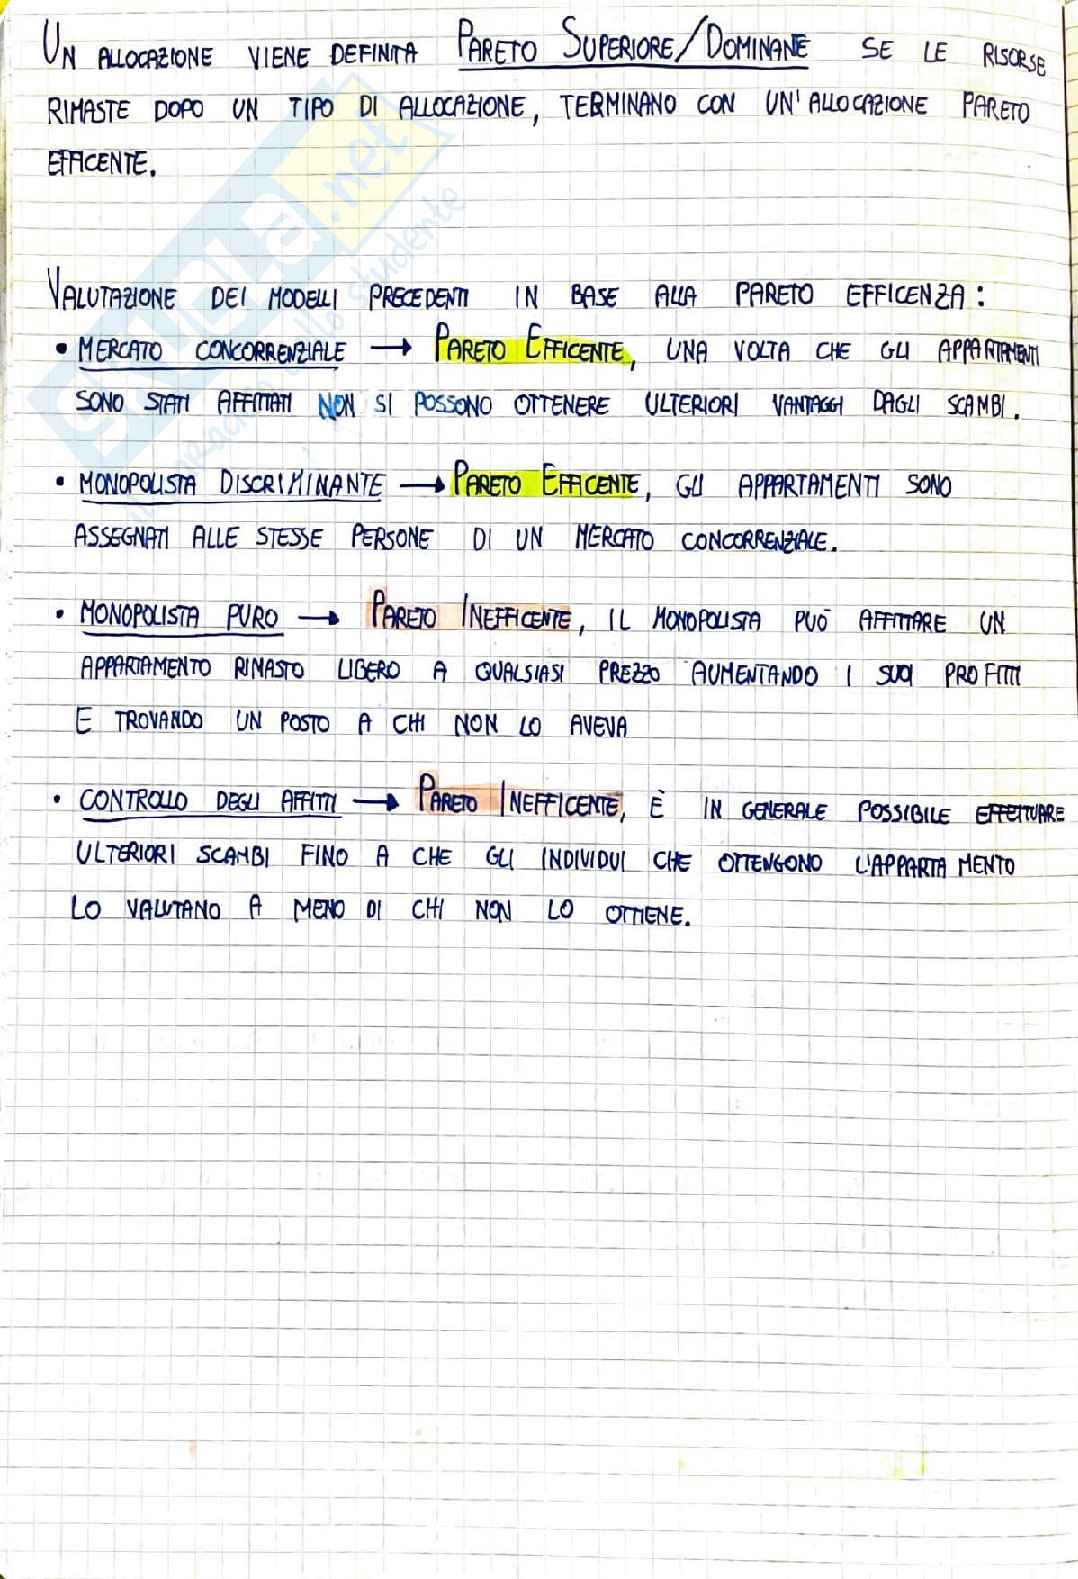 UN ALLOCAZIONE VIENE DEFINITA PARETO SUPERIORE/DOMINANE SE LE RISORSE
RIMASTE DOPO UN TIPO DI ALLOCAZIONE, TERMINANO CON UN'ALLOCAZIONE PARETO
EFFICENTE.
VALUTAZIONE DEI MODELLI PRECEDENTI IN BASE ALLA PARETO EFFICENZA:
• MERCATO CONCORRENZIALE → PARETO EFFICENTE, UNA VOLTA CHE GLI APPARTAMENTI
SONO STATI AFFITTATI NON SI POSSONO OTTENERE ULTERIORI VANTAGGI DAGLI SCAMBI.
• MONOPOLISTA DISCRIMINANTE → PARETO EFFICENTE, GLI APPARTAMENTI SONO
ASSEGNATI ALLE STESSE PERSONE DI UN MERCATO CONCORRENZIALE.
• MONOPOLISTA PURO → PARETO INEFFICENTE, IL MONOPOLISTA PUÒ AFFITTARE UN
APPARTAMENTO RIMASTO LIBERO A QUALSIASI PREZZO AUMENTANDO I SUOI PROFITTI
E TROVANDO UN POSTO A CHI NON LO AVEVA
• CONTROLLO DEGLI AFFITTI → PARETO INEFFICENTE, È IN GENERALE POSSIBILE EFFETTUARE
ULTERIORI SCAMBI FINO A CHE GLI INDIVIDUI CHE OTTENGONO L'APPARTAMENTO
LO VALUTANO A MENO DI CHI NON LO OTTIENE.
skuola.net